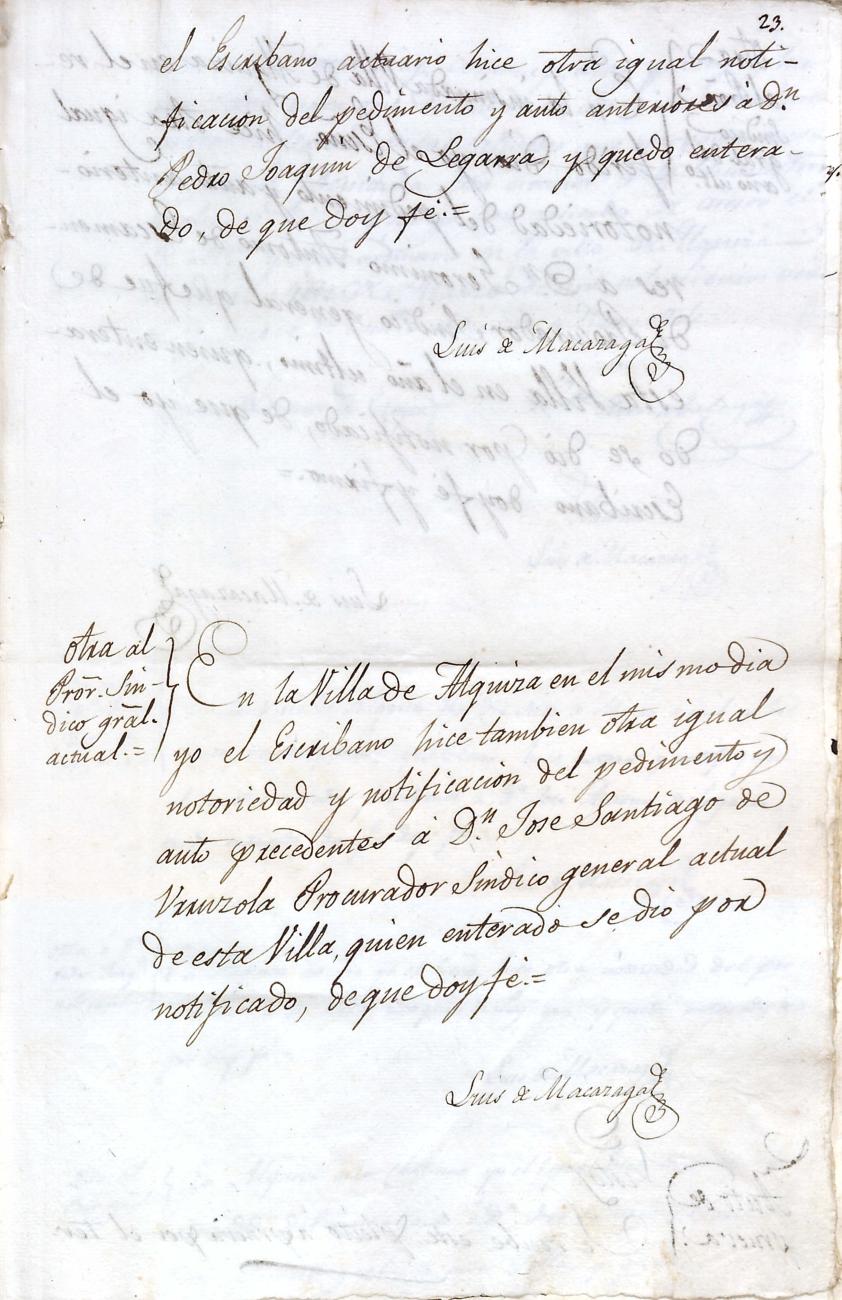 23.
el Escribano actuario hice otra igual noti-
ficacion del pedimento y auto anteriores à Dn.
Pedro Joaquin de Legarra, y quedo entera-
do, de que doy fé.=
Luis de Macaraga
otra al
Pror. Sin-
dico gral.
actual.=
En la Villa de Alquiza en el mismo dia
yo el Escribano hice tambien otra igual
notoriedad y notificacion del pedimento y
auto precedentes à Dn. Jose Santiago de
Vruzola Procurador Sindico general actual
de esta Villa, quien enterado se dio por
notificado, de que doy fé.=
Luis de Macaraga